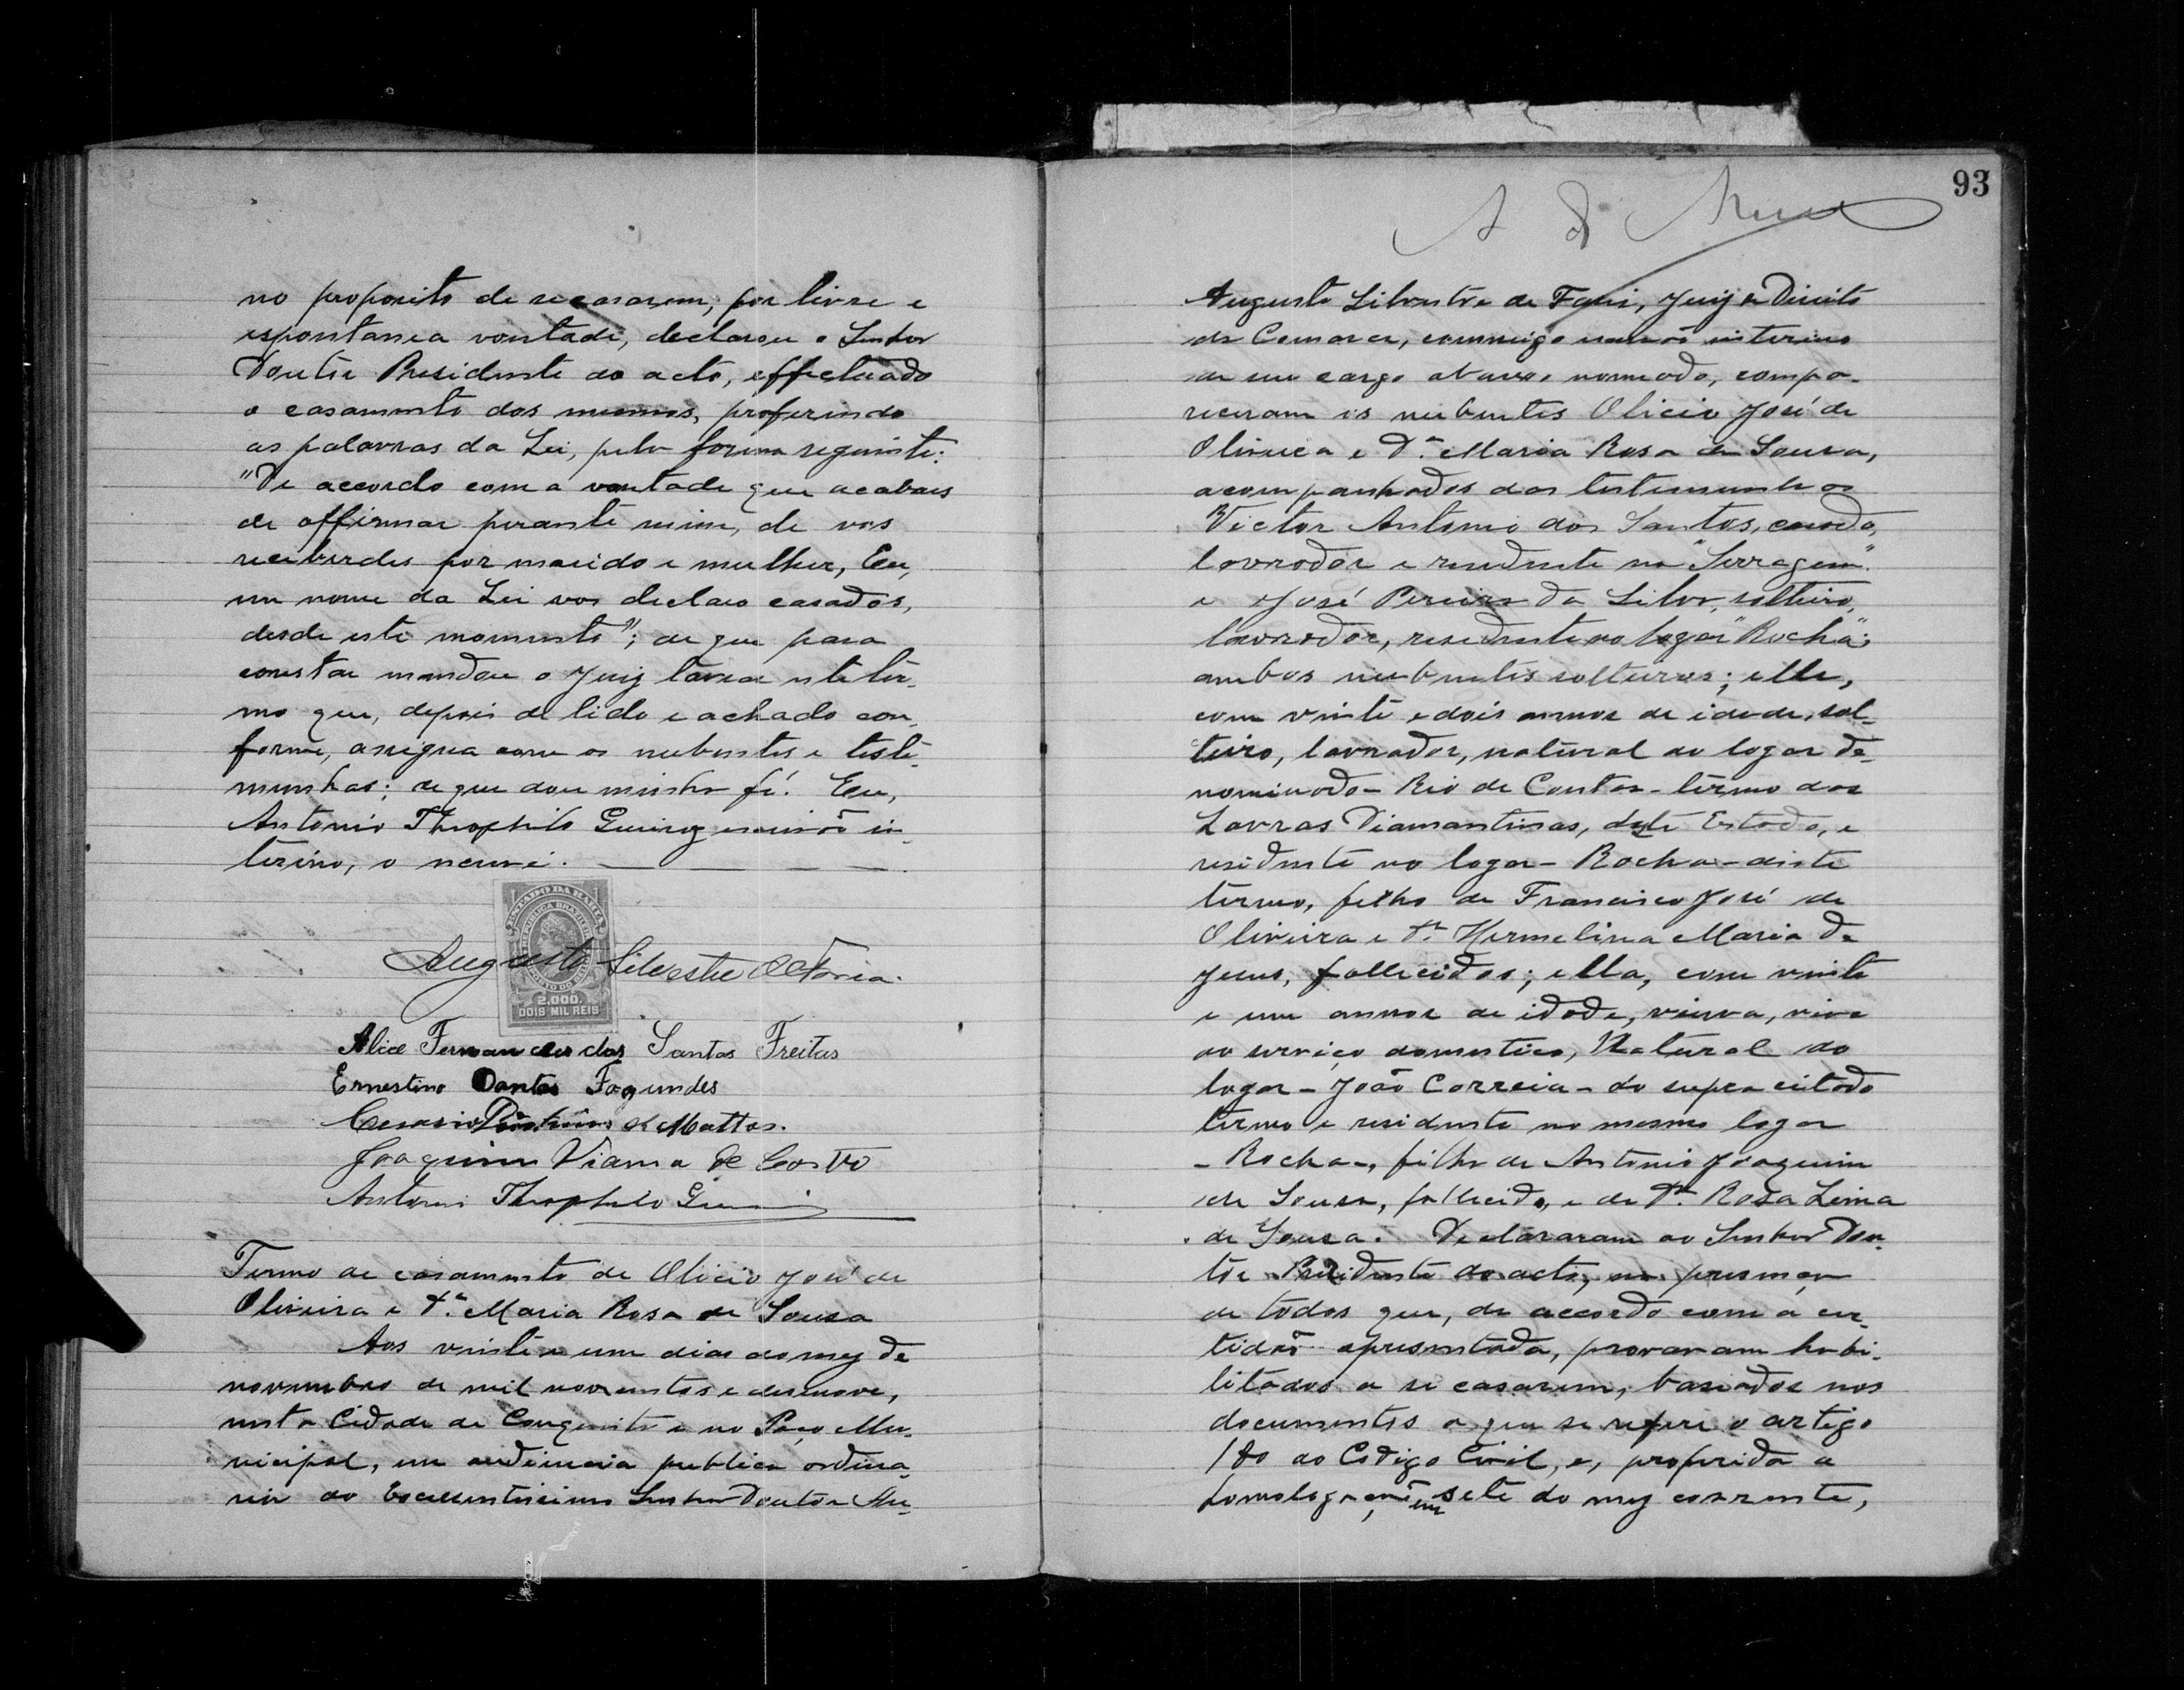 no proposito de se casarem, por livre e
espontanea vontade, declarou o Senhor
Doutor Presidente do acto, effectuado
o casamento dos mesmos, proferindo
as palavras da Lei, pela forma seguinte:
"De accordo com a vontade que acabaes
de affirmar perante mim, de vos
receberdes por marido e mulher, Eu,
em nome da Lei vos declaro casados,
desde este momento"; de que para
constar mandou o Juiz lavrar este ter-
mo que, depois de lido e achado con-
forme, assigna com os nubentes e teste-
munhas; de que dou minha fé. Eu,
Antonio Theophilo Queiroz escrivão in-
terino, o escrevi.
ESTADO DA BAHIA
REPUBLICA BRAZILEIRA
2,000.
DOIS MIL REIS
Augusto Silvestre de Faria.
Alice Fernandes dos Santos Freitas
Ernestino Dantas Fagundes
Cesario de Mattos.
Joaquim Viana de Castro
Antonio Theophilo
Termo de casamento de Olicio José de
Oliveira e D.ª Maria Rosa de Sousa
Aos vinte e um dias do mez de
novembro de mil novecentos e desenove,
nesta Cidade de Conquista e no Paço Mu-
nicipal, em audiencia publica ordina-
ria do Excellentissimo Senhor Doutor Au-
93
Augusto Silvestre de Faria, Juiz de Direito
da Comarca, commigo escrivão interino
de seu cargo abaixo nomeado, compa-
receram os nubentes Olicio José de
Oliveira e D.ª Maria Rosa de Sousa,
acompanhados das testemunhas
Victor Antonio dos Santos, casado,
lavrador e residente na "Serragem"
e José Pereira da Silva, solteiro,
lavrador, residente no logar "Rocha";
ambos nubentes solteiros; elle,
com vinte e dois annos de idade, sol-
teiro, lavrador, natural do logar de-
nominado - Rio de Contas - termo das
Lavras Diamantinas, deste Estado, e
residente no logar - Rocha - deste
termo, filho de Francisco José de
Oliveira e D.ª Hermelina Maria de
Jesus, fallecidos; ella, com vinte
e um annos de idade, viuva, vive
do serviço domestico, Natural do
logar - João Correia - do supra citado
termo e residente no mesmo logar
- Rocha -, filha de Antonio Joaquim
de Sousa, fallecido, e de D.ª Rosa Lima
de Sousa. Declararam ao Senhor Dou-
tor Presidente do acto, na presença
de todos que, de accordo com a cer-
tidão apresentada, provaram habi-
litados a se casarem, baseados nos
documentos a que se refere o artigo
180 do Codigo Civil, e, proferida a
homologação em sete do mez corrente,